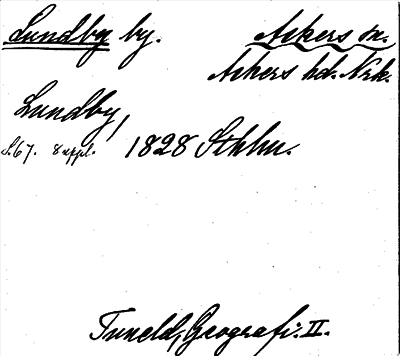 Lundby by. Åkers sn.
Åkers hd. Nrk.
Lundby,
S.67. 8 uppl. 1828 Sthlm.
Tuneld, Geografi. II.